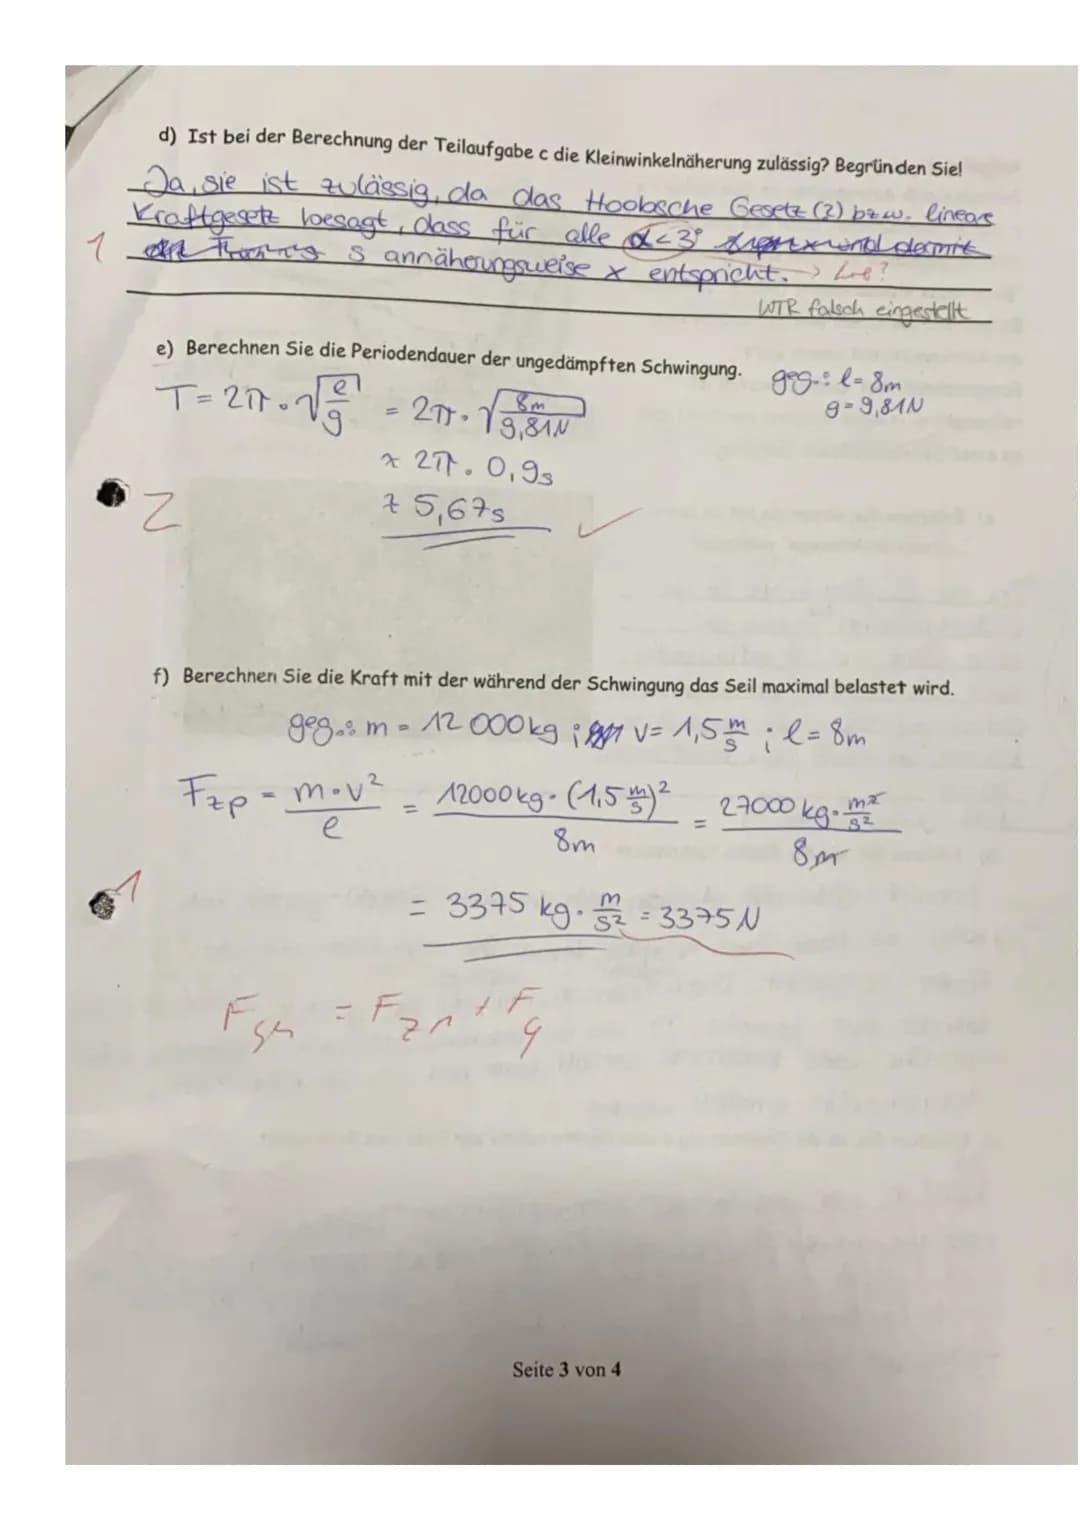 d) Ist bei der Berechnung der Teilaufgabe c die Kleinwinkelnäherung zulässig? Begründen Sie!
Ja, sie ist zulässig, da das Hooksche Gesetz (2) bzw. lineare
Kraftgesetz besagt, dass für alle α<3°
1 s annäherungsweise x entspricht. →
WTR falsch eingestellt
e) Berechnen Sie die Periodendauer der ungedämpften Schwingung.
geg.: l = 8m
g = 9,81N
T = 2π · √(l/g) = 2π · √(8m/9,81N)
≈ 2π · 0,9s
2
≈ 5,67s ✓
f) Berechnen Sie die Kraft mit der während der Schwingung das Seil maximal belastet wird.
geg.: m = 12 000kg ; v = 1,5 m/s ; l = 8m
Fzp = m·v²/l = 12000kg · (1,5 m/s)²/8m = 27000 kg · m²/s²/8m
1
= 3375 kg · m/s² = 3375N
= F + F
Seite 3 von 4